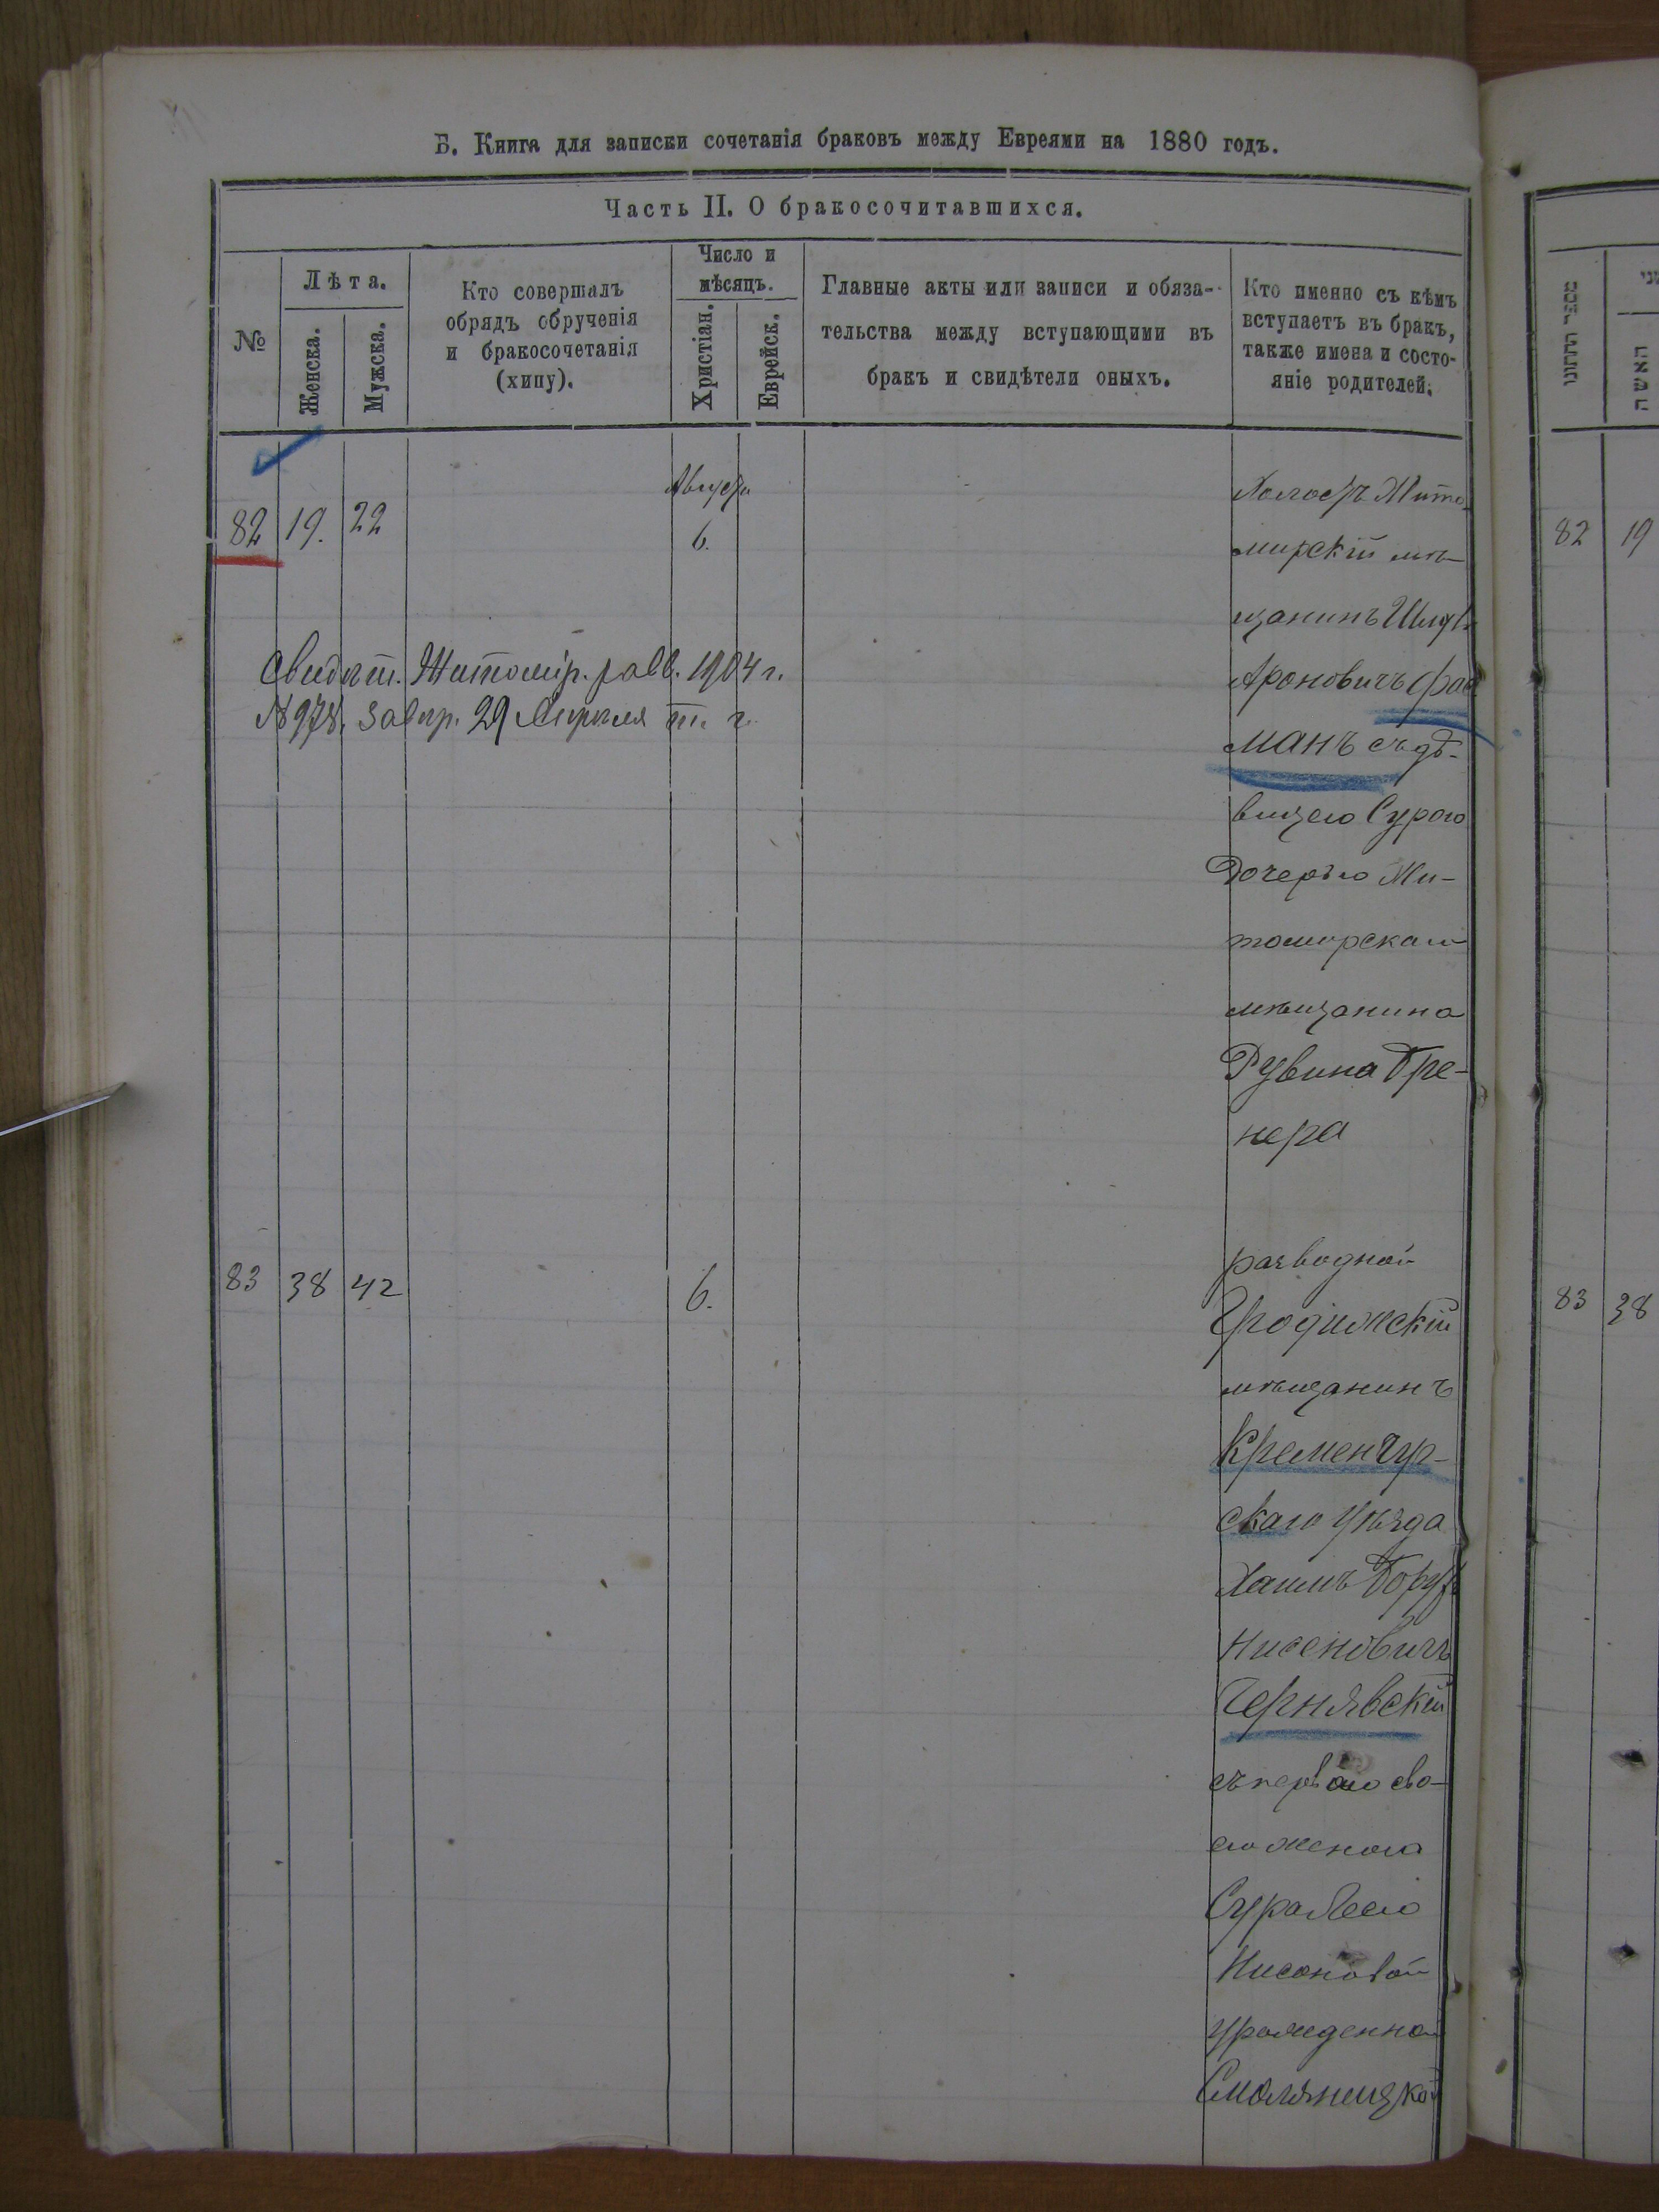 Б. Книга для записки сочетанія браковъ между Евреями на 1880 годъ.
Часть II. О бракосочитавшихся.
№
Лѣта.
Женска.
Мужска.
Кто совершалъ
обрядъ обрученія
и бракосочетанія
(хипу).
Число и
мѣсяцъ.
Христіан.
Еврейск.
Главные акты или записи и обяза-
тельства между вступающими въ
бракъ и свидѣтели оныхъ.
Кто именно съ кѣмъ
вступаетъ въ бракъ,
также имена и состо-
яніе родителей.
82 19. 22
Августа
6.
Холостъ Жито-
мирскій мѣ-
щанинъ
Ароновичъ
манъ съ дѣ-
вицею Сурою
Дочерью Жи-
томирскаго
мѣщанина
Рувина Бре-
нера
Свидѣт. Житомір. равв. 1904 г.
№ 978. завѣр. 29 Апрѣля т. г.
83 38 42
6.
разводной
мѣщанинъ
Кременчуг-
скаго уѣзда
Хаимъ Борухъ
Нисеновичъ
Чернявскій
съ первою сво-
ею женою
Сура
Нисоновой
урожденной
מספר החתונות
האשה
82 19
83 38